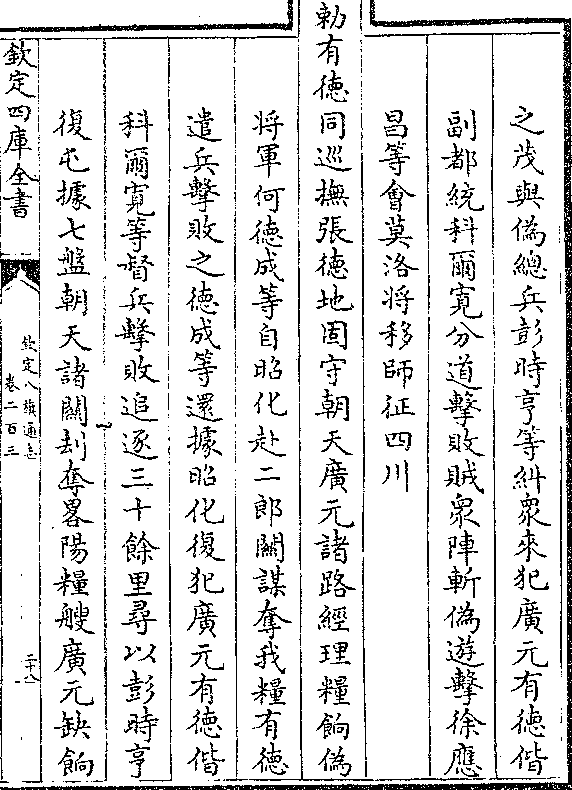 之茂與偽總兵彭時亨等糾衆來犯廣元有徳偕
副都統科爾寛分道擊敗賊衆陣斬偽遊擊徐應
昌等會莫洛將移師征四川
勅有徳同巡撫張徳地固守朝天廣元諸路經理糧餉偽
將軍何徳成等自昭化赴二郎關謀奪我糧有徳
遣兵擊敗之徳成等還據昭化復犯廣元有徳偕
科爾寛等督兵擊敗追逐三十餘里尋以彭時亨
復屯據七盤朝天諸關刦奪畧陽糧艘廣元缺餉
欽定四庫全書
欽定八旗通志
卷二百三
二十八